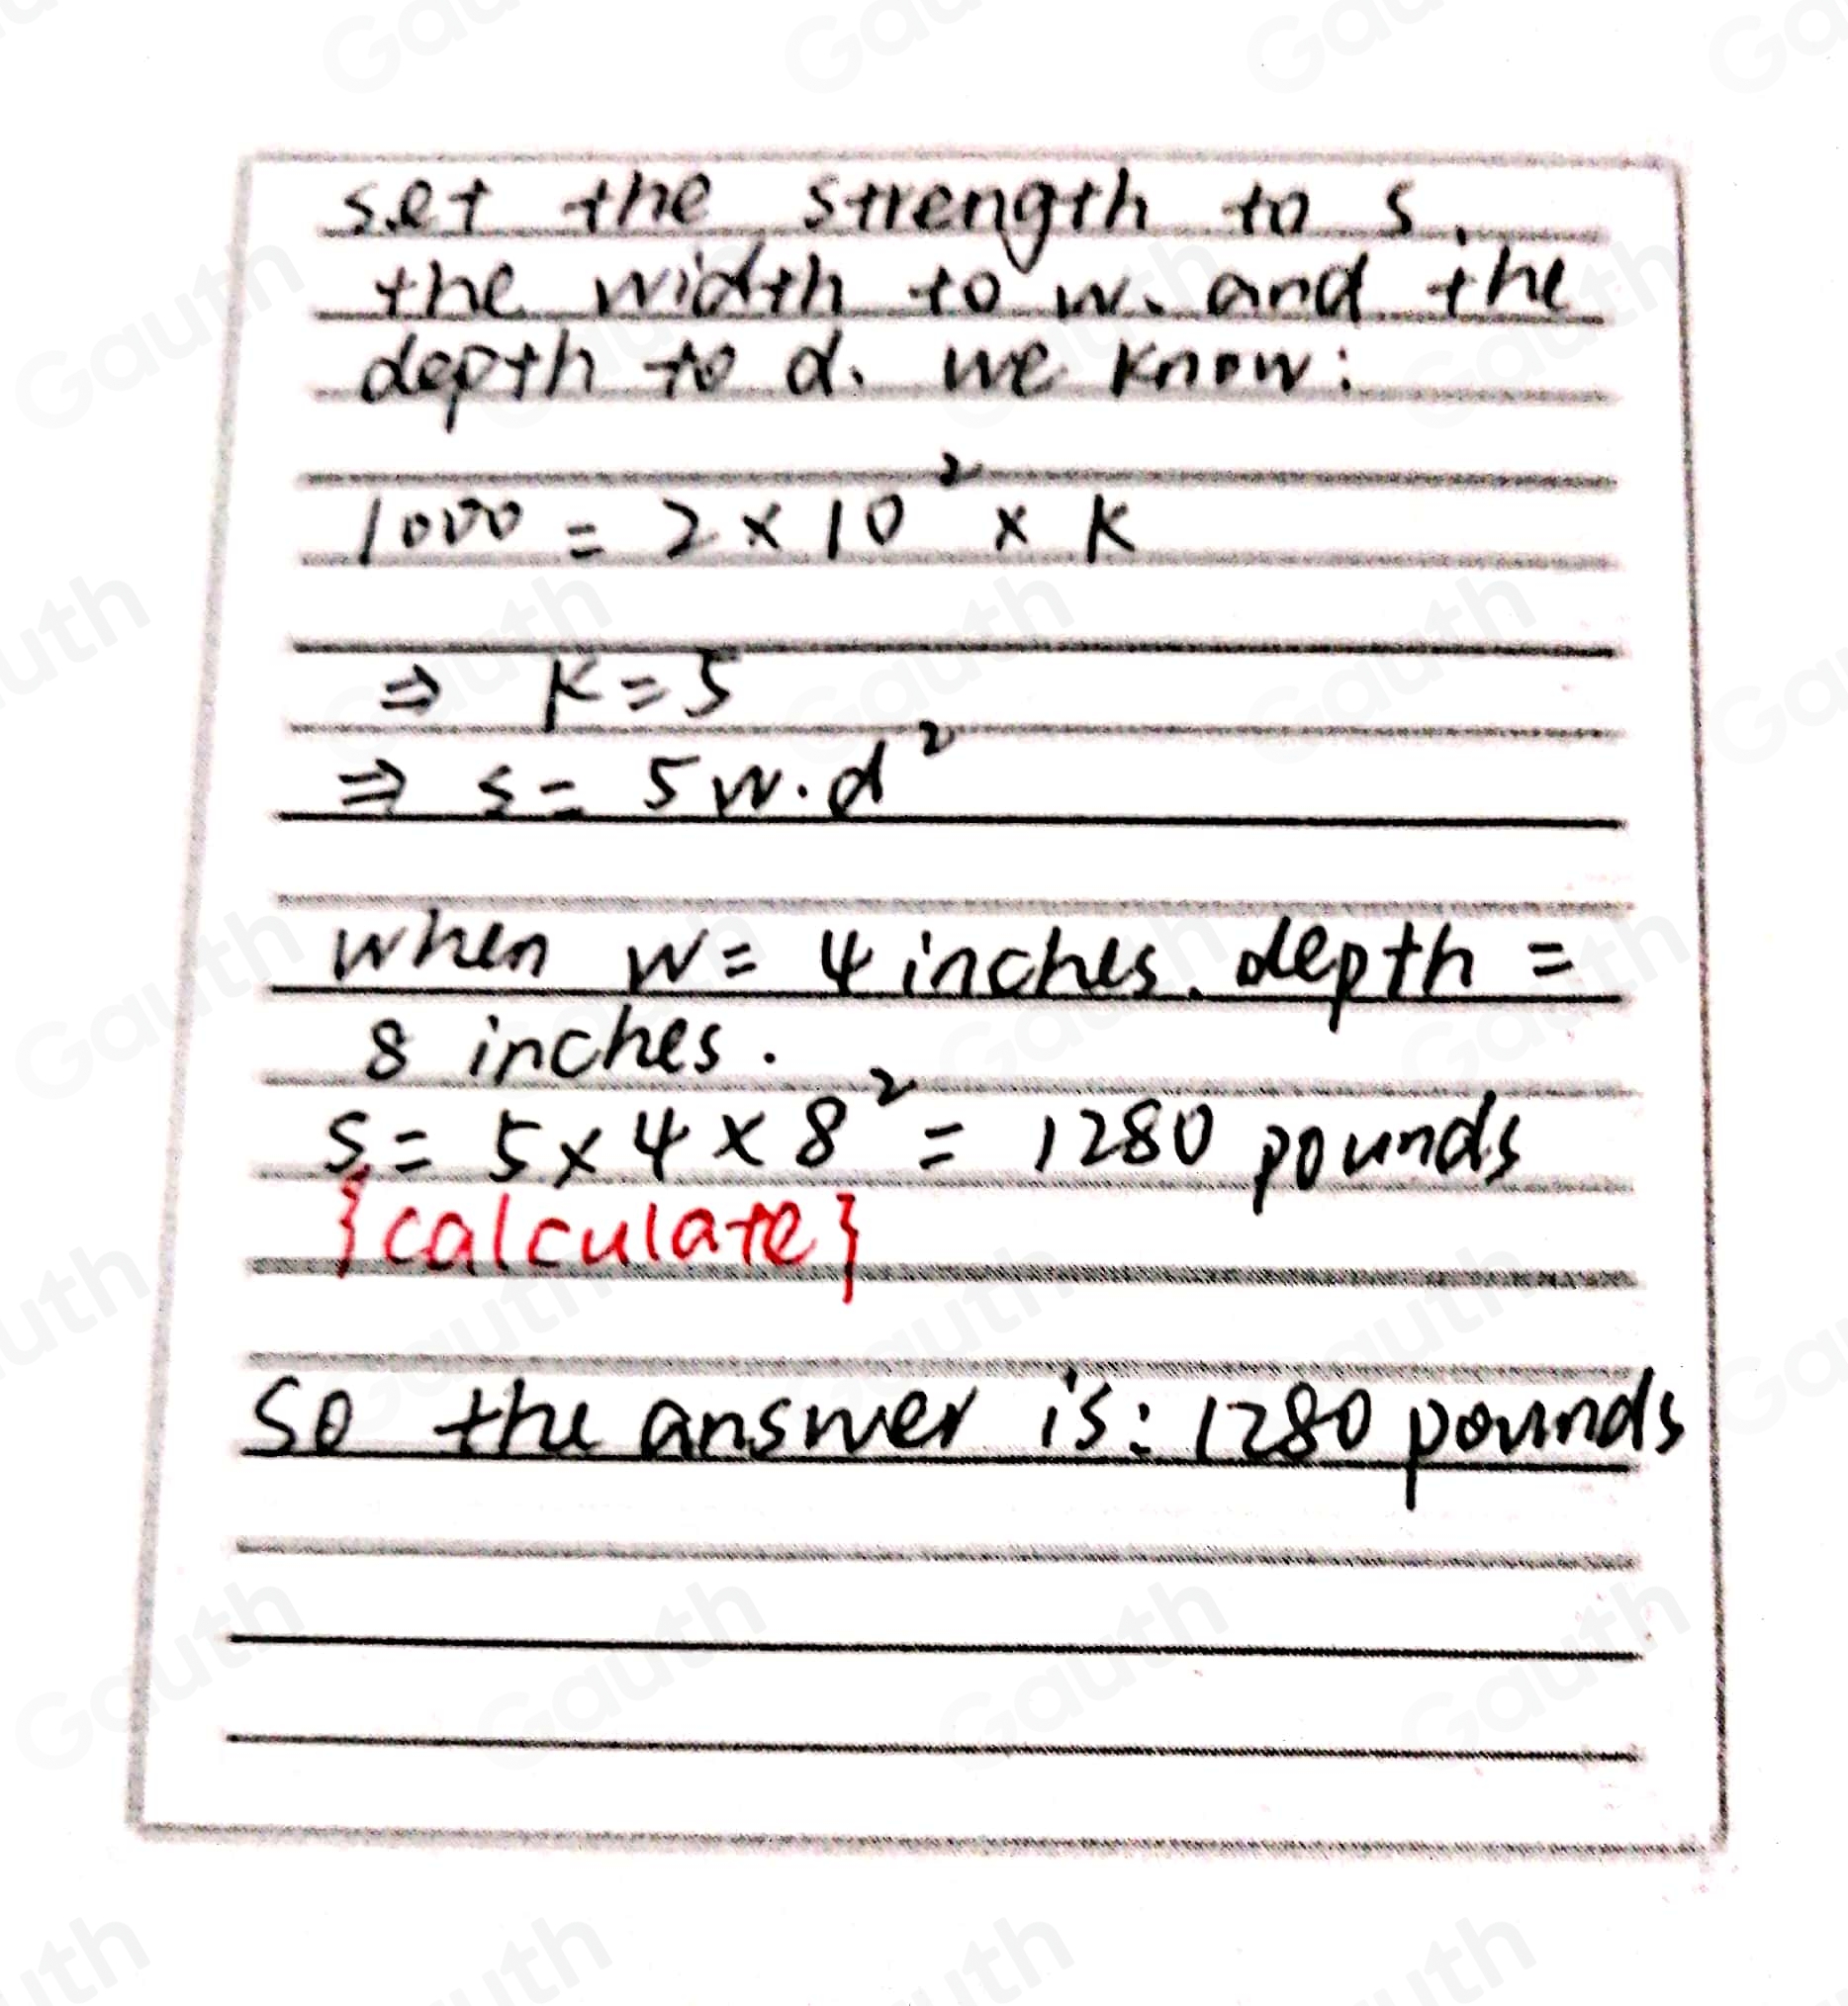 set the strength to s.
the width to w. and the
depth to d. we know:
1000 = 2 × 10² × k
⇒ k = 5
⇒ s = 5w·d²
when w = 4 inches. depth =
8 inches.
s = 5 × 4 × 8² = 1280 pounds
{calculate}
so the answer is: 1280 pounds
Gauth